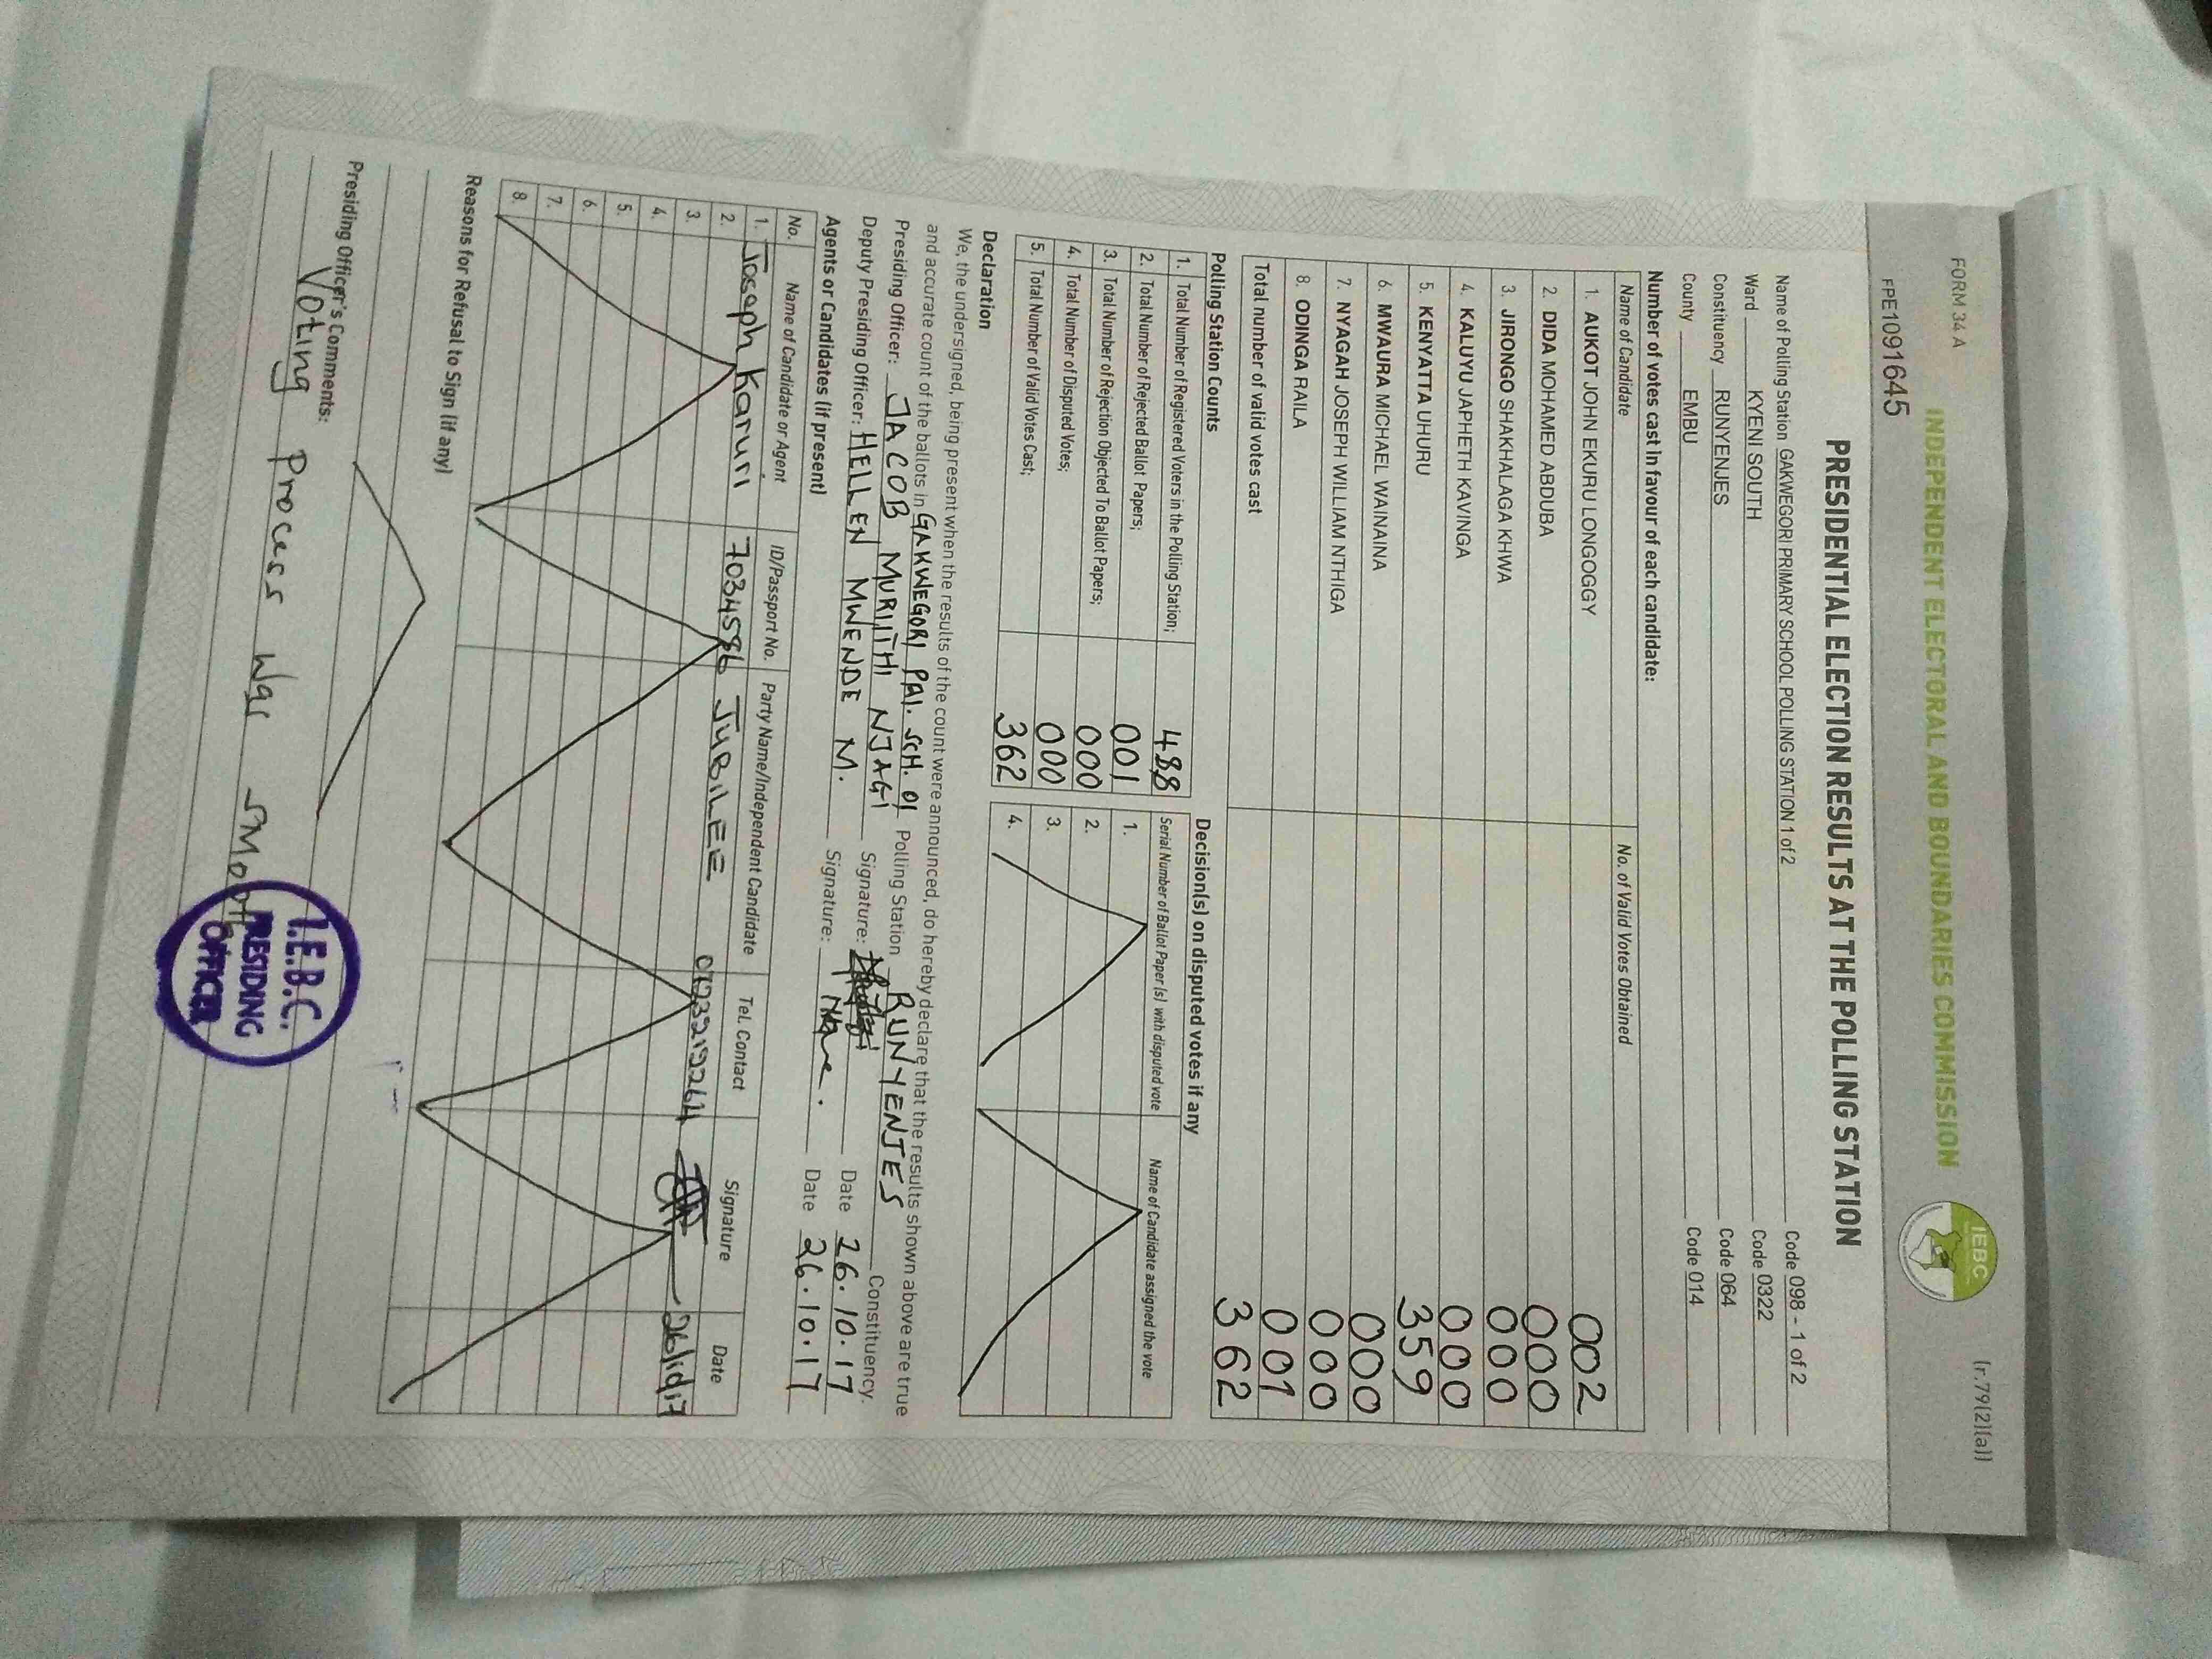 FORM 34 A
(r.79(2)(a))
INDEPENDENT ELECTORAL AND BOUNDARIES COMMISSION
IEBC
FPE1091645
PRESIDENTIAL ELECTION RESULTS AT THE POLLING STATION
Name of Polling Station GAKWEGORI PRIMARY SCHOOL POLLING STATION 1 of 2 Code 098 - 1 of 2
Ward KYENI SOUTH Code 0322
Constituency RUNYENJES Code 064
County EMBU Code 014
Number of votes cast in favour of each candidate:
Name of Candidate No. of Valid Votes Obtained
1. AUKOT JOHN EKURU LONGOGGY 002
2. DIDA MOHAMED ABDUBA 000
3. JIRONGO SHAKHALAGA KHWA 000
4. KALUYU JAPHETH KAVINGA 000
5. KENYATTA UHURU 359
6. MWAURA MICHAEL WAINAINA 000
7. NYAGAH JOSEPH WILLIAM NTHIGA 000
8. ODINGA RAILA 001
Total number of valid votes cast 362
Polling Station Counts
1. Total Number of Registered Voters in the Polling Station; 488
2. Total Number of Rejected Ballot Papers; 001
3. Total Number of Rejection Objected To Ballot Papers; 000
4. Total Number of Disputed Votes; 000
5. Total Number of Valid Votes Cast; 362
Decision(s) on disputed votes if any
Serial Number of Ballot Paper(s) with disputed vote Name of Candidate assigned the vote
1.
2.
3.
4.
Declaration
We, the undersigned, being present when the results of the count were announced, do hereby declare that the results shown above are true
and accurate count of the ballots in GAKWEGORI PRI. SCH. 01 Polling Station RUNYENJES Constituency.
Presiding Officer: JACOB MURIITHI NJAGI Signature: Date 26.10.17
Deputy Presiding Officer: HELLEN MWENDE M. Signature: Date 26.10.17
Agents or Candidates (if present)
No. Name of Candidate or Agent ID/Passport No. Party Name/Independent Candidate Tel. Contact Signature Date
1. Joseph Karuri 7034586 JUBILEE 0723219264 26/10/17
2.
3.
4.
5.
6.
7.
8.
Reasons for Refusal to Sign (if any)
Presiding Officer's Comments:
Voting Process Was smooth
I.E.B.C.
PRESIDING
OFFICER